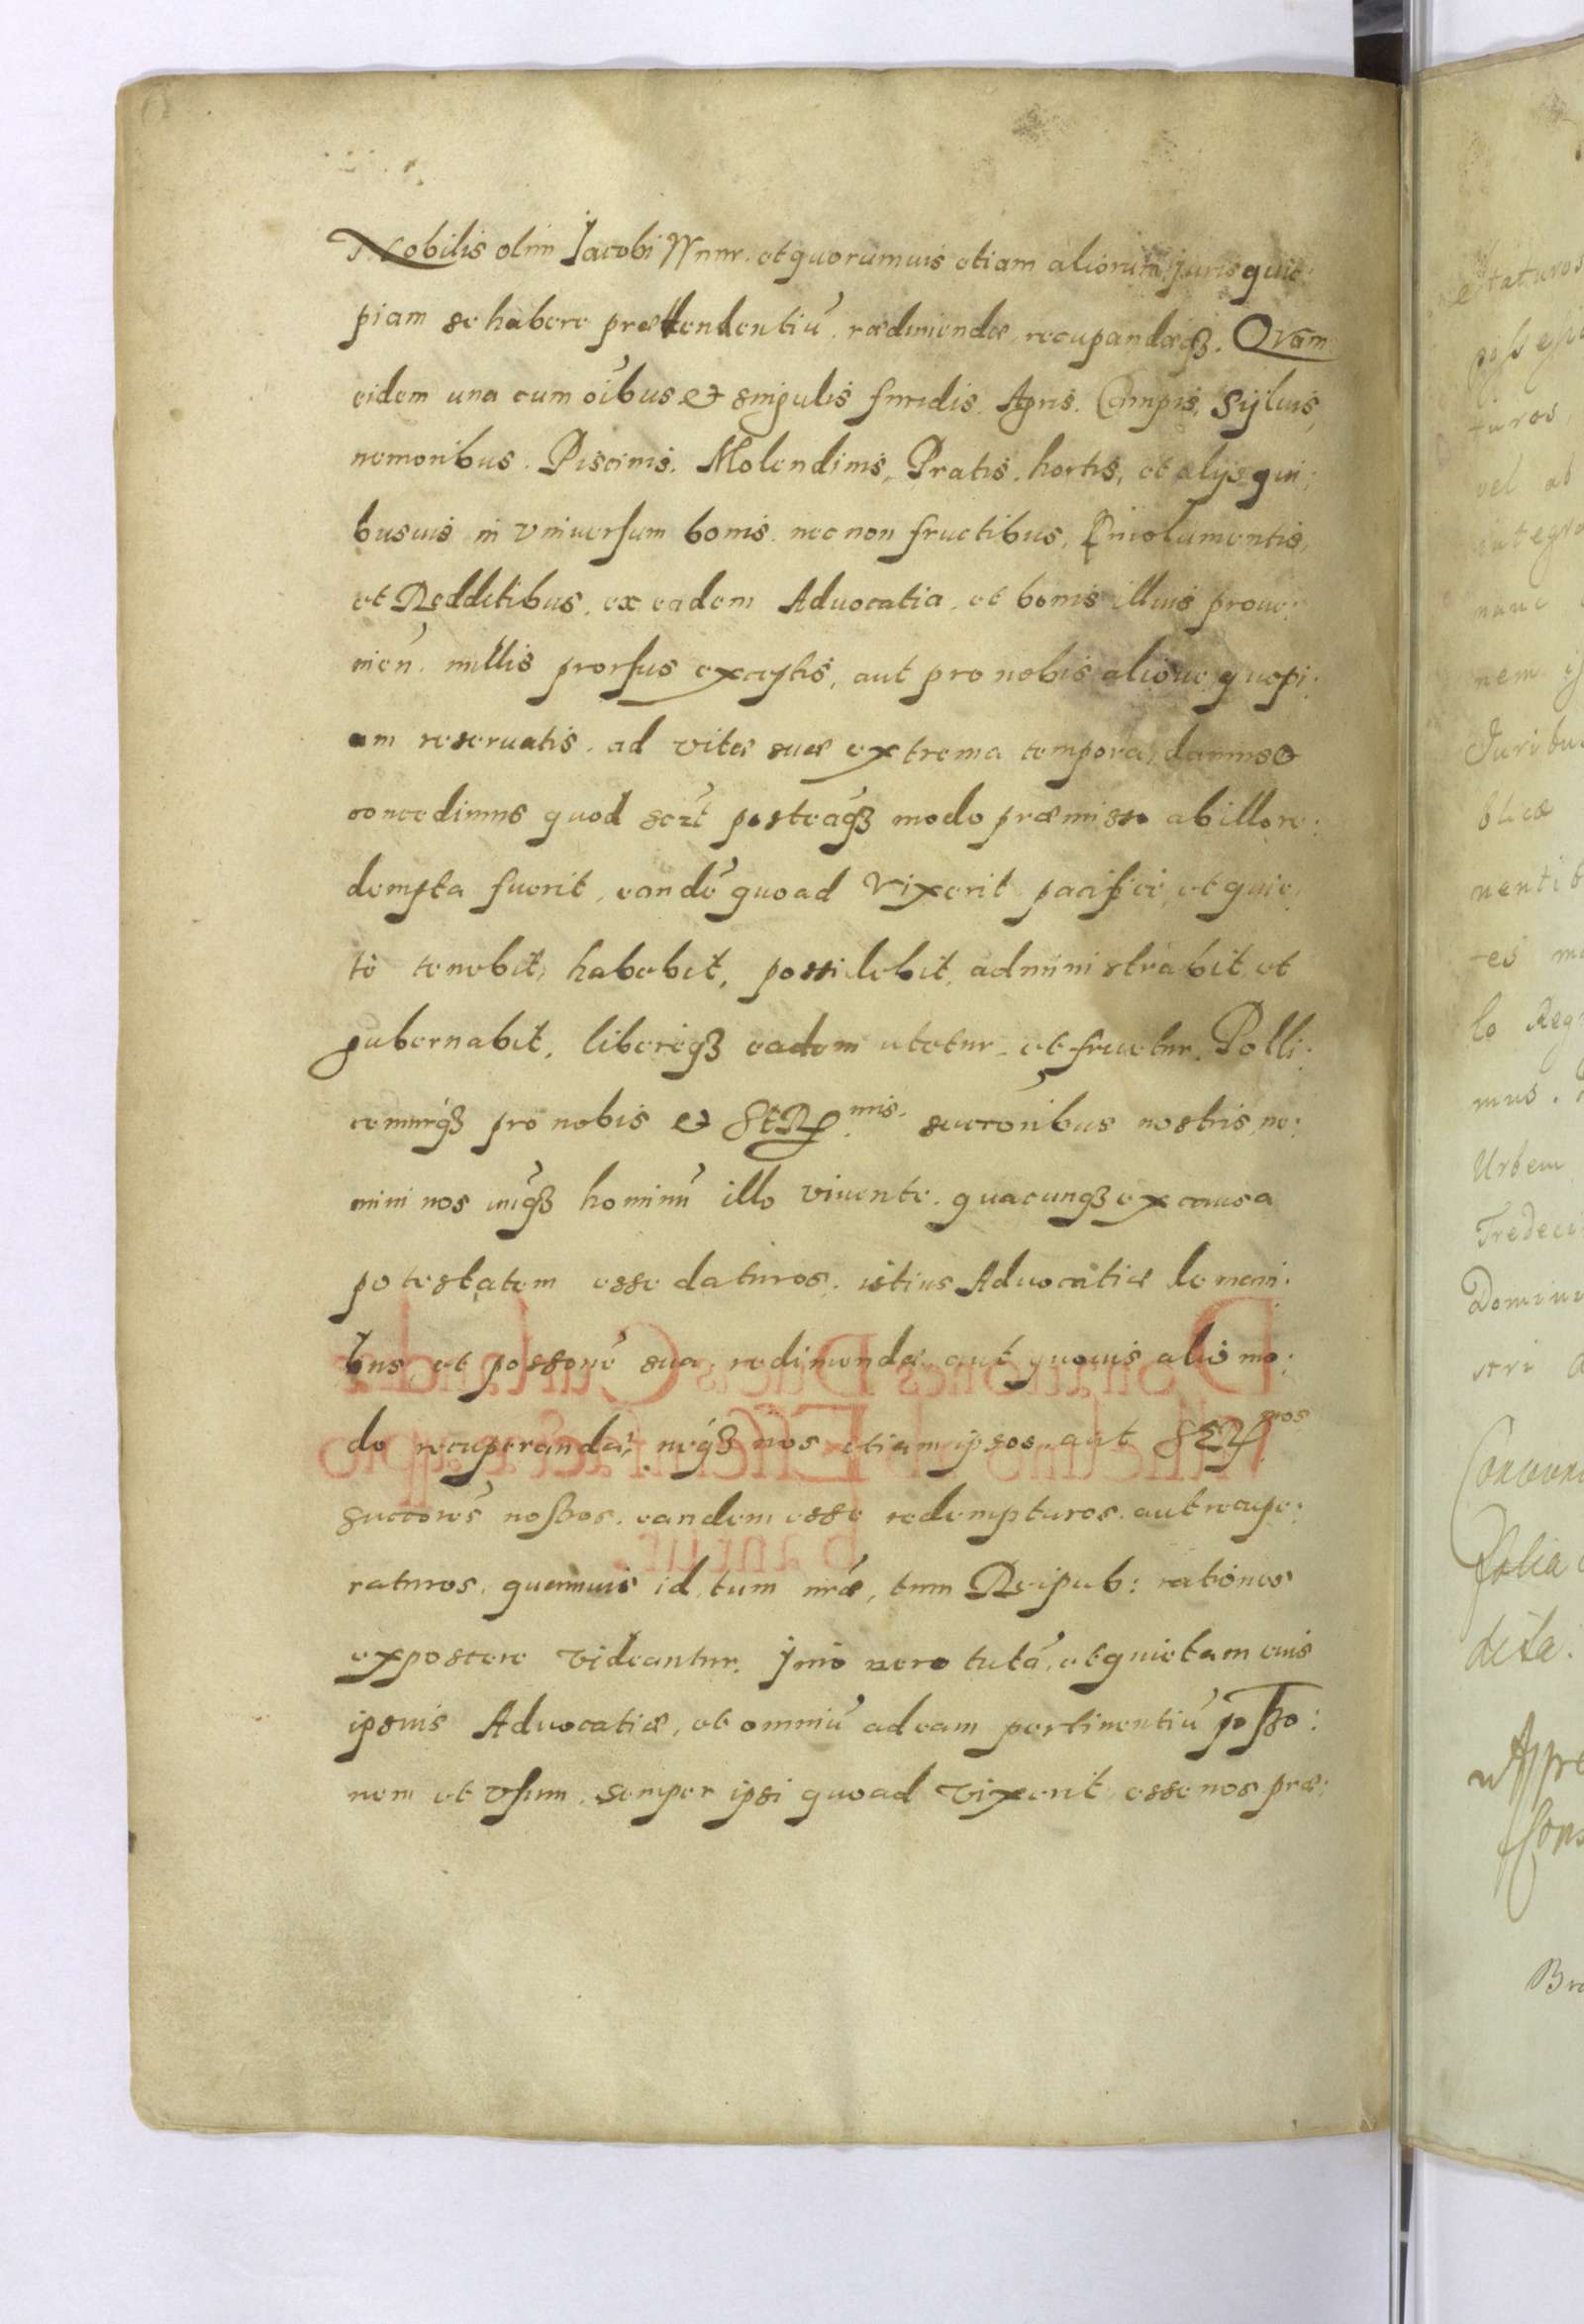 Nobilis olim Jacobi Wnnr. et quorumuis etiam aliorum juris quic:
piam se habere prættendentiū. rædimendæ, recupandæqȝ. Qvam
eidem una cum oībus et singulis fundis. Agris. Campis, Syluis,
nemoribus. Piscinis. Molendinis, Pratis. hortis, et alijs qui:
busuis in vniuersum bonis. nec non fructibus, Emolumentis,
et Redditibus. ex eadem Aduocatia. et bonis illius proue:
nien̄. nullis prorsus exceptis, aut pro nobis alioue quopi:
am reseruatis. ad vitæ suæ extrema tempora, damus et
concedimus quod posteāqȝ modo præmisso ab illo re:
dempta fuerit, eandē quoad vixerit pacificè, et quie:
tè tenebit, habebit, possidebit, administrabit et
gubernabit, liberèqȝ eadem utetur et fruetur. Polli:
cemurqȝ pro nobis et successoribus nostris, ne:
mini nos unqȝ hominū illo viuente. quacunqȝ ex causa
potestatem esse daturos. istius Aduocatiæ de mani:
bus, et possonē sua, redimendæ. aut quouis alio mo:
do recuperandæ, neqȝ nos etiam ipsos. aut
succores nostros. eandem esse redempturos. aut recupe:
raturos, quamuis id, tum nr̄æ, tum Reipub: rationes
exposcere videantur. Jmò uero tutā, et quietam eius
ipsius Aduocatiæ, et omniū ad eam pertinentiū poßeo:
nem et vsum. semper ipsi quoad vixerit, esse nos præ:
Donationes Ducis Curlandiæ
bantur.
etaturos
turos
vel ab
integra
nunc
nem
Juribu
blicæ
nentib
tes
lo Reg
mus.
Urbem
Tredeci
Domini
stri
folia